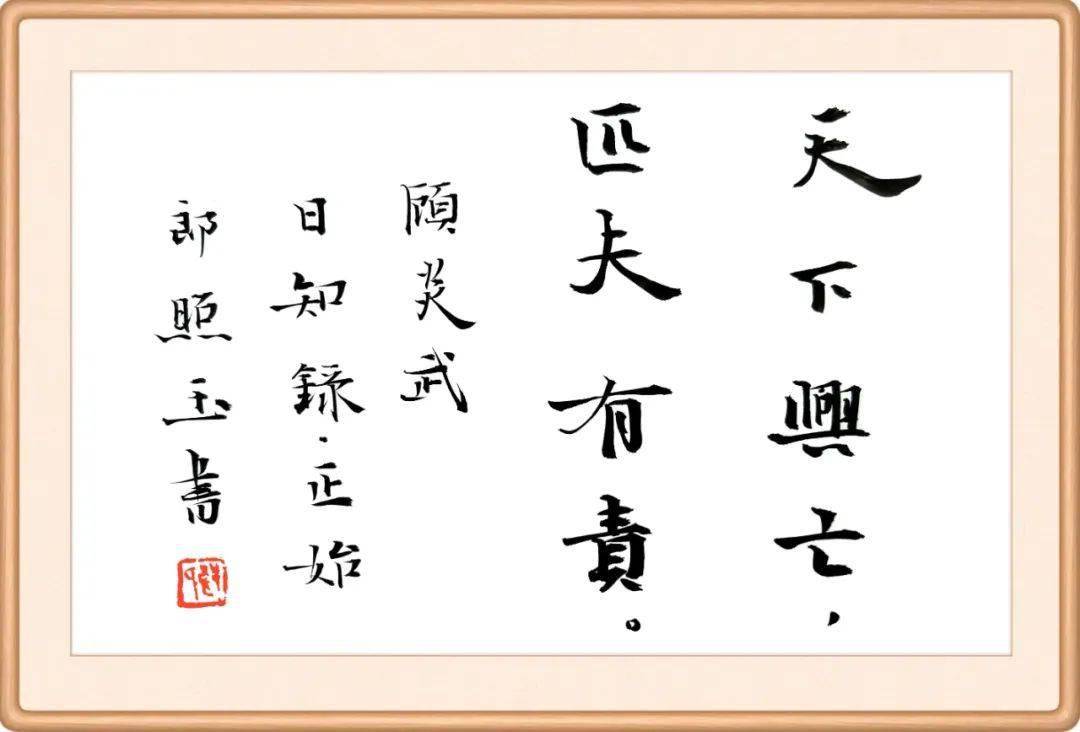 天下興亡，
匹夫有責。
顧炎武
日知録·正始
郎照玉書